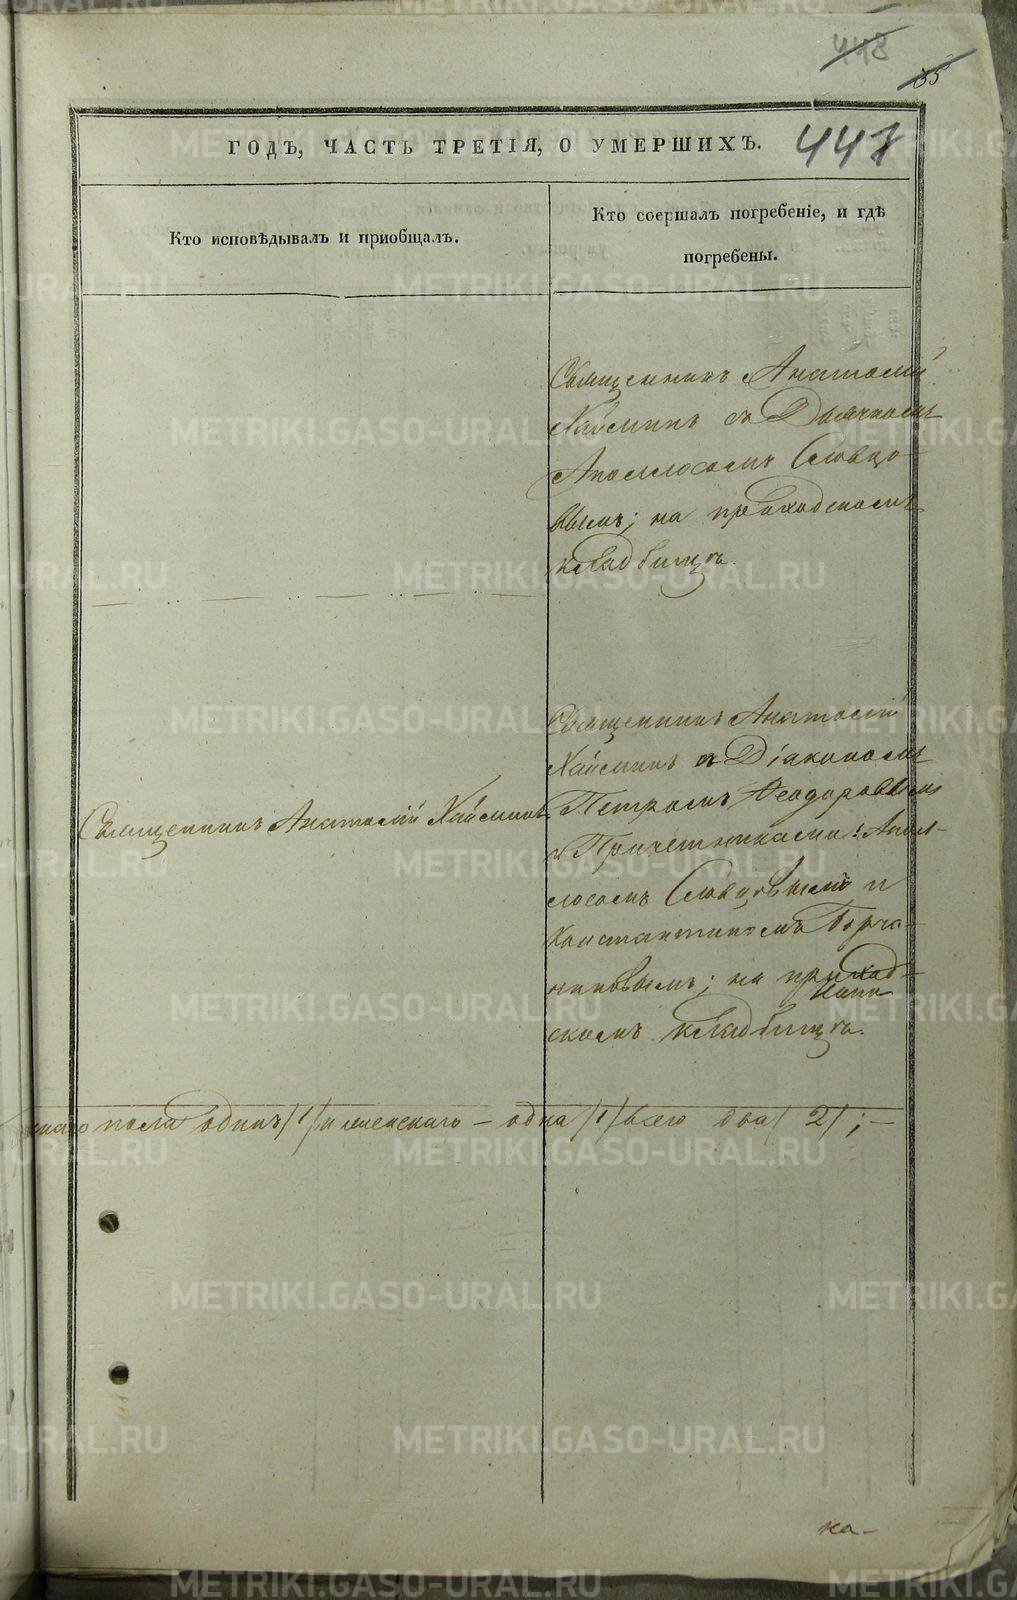 448
35
ГОДЪ, ЧАСТЬ ТРЕТІЯ, О УМЕРШИХЪ.
447
Кто исповѣдывалъ и приобщалъ.
Кто соершалъ погребеніе, и гдѣ
погребены.
Священникъ Анатолій
Хайминъ съ Дьячкомъ
Аполлосомъ Словцо-
вымъ; на приходскомъ
кладбищѣ.
Священникъ Анатолій Хайминъ
Священникъ Анатолій
Хайминъ съ Діакономъ
Петромъ Феодоровымъ
и Причетниками: Апол-
лосомъ Словцовымъ и
Константиномъ
на приход-
скомъ кладбищѣ.
пола одинъ /1/ и женскаго — одна /1/ всего два / 2/; —
на-
METRIKI.GASO-URAL.RU